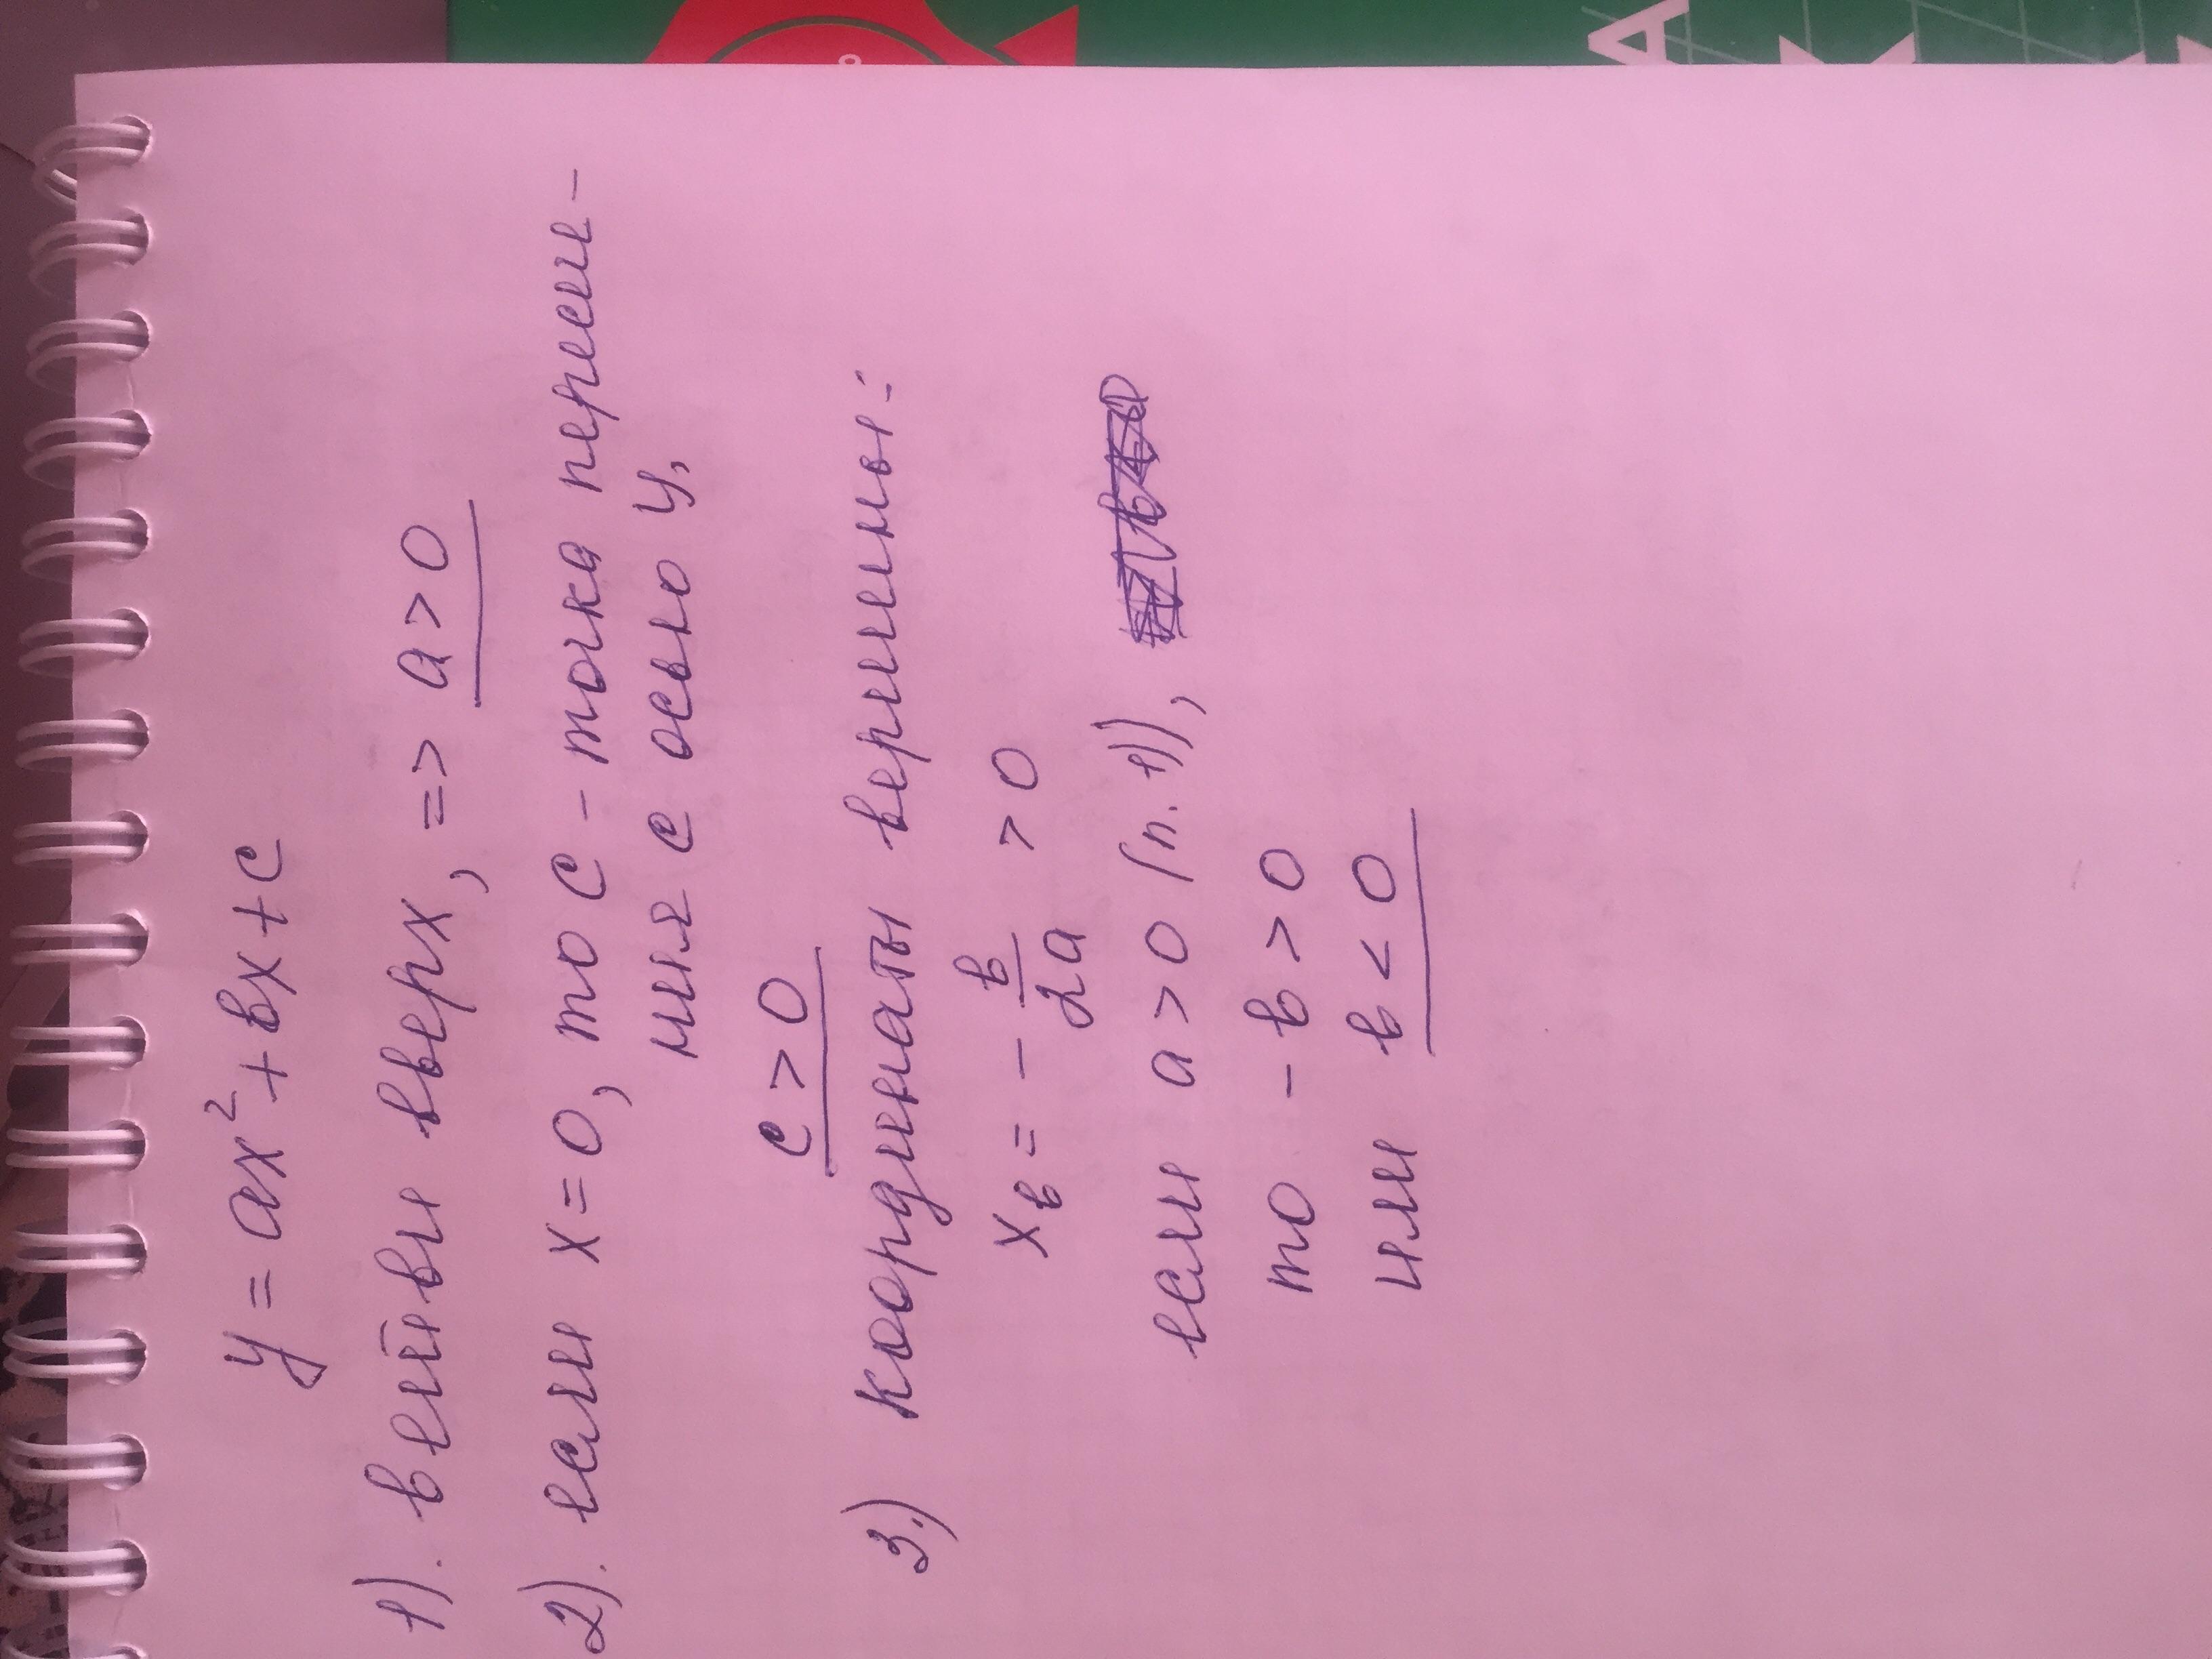 y = ax² + bx + c
1). ветви вверх, => a > 0
2). если x = 0, то c - точка пересе-
ния с осью y,
c > 0
3.) координаты вершины:
xв = - в/2a > 0
если a > 0 (п. 1)),
то - в > 0
или в < 0